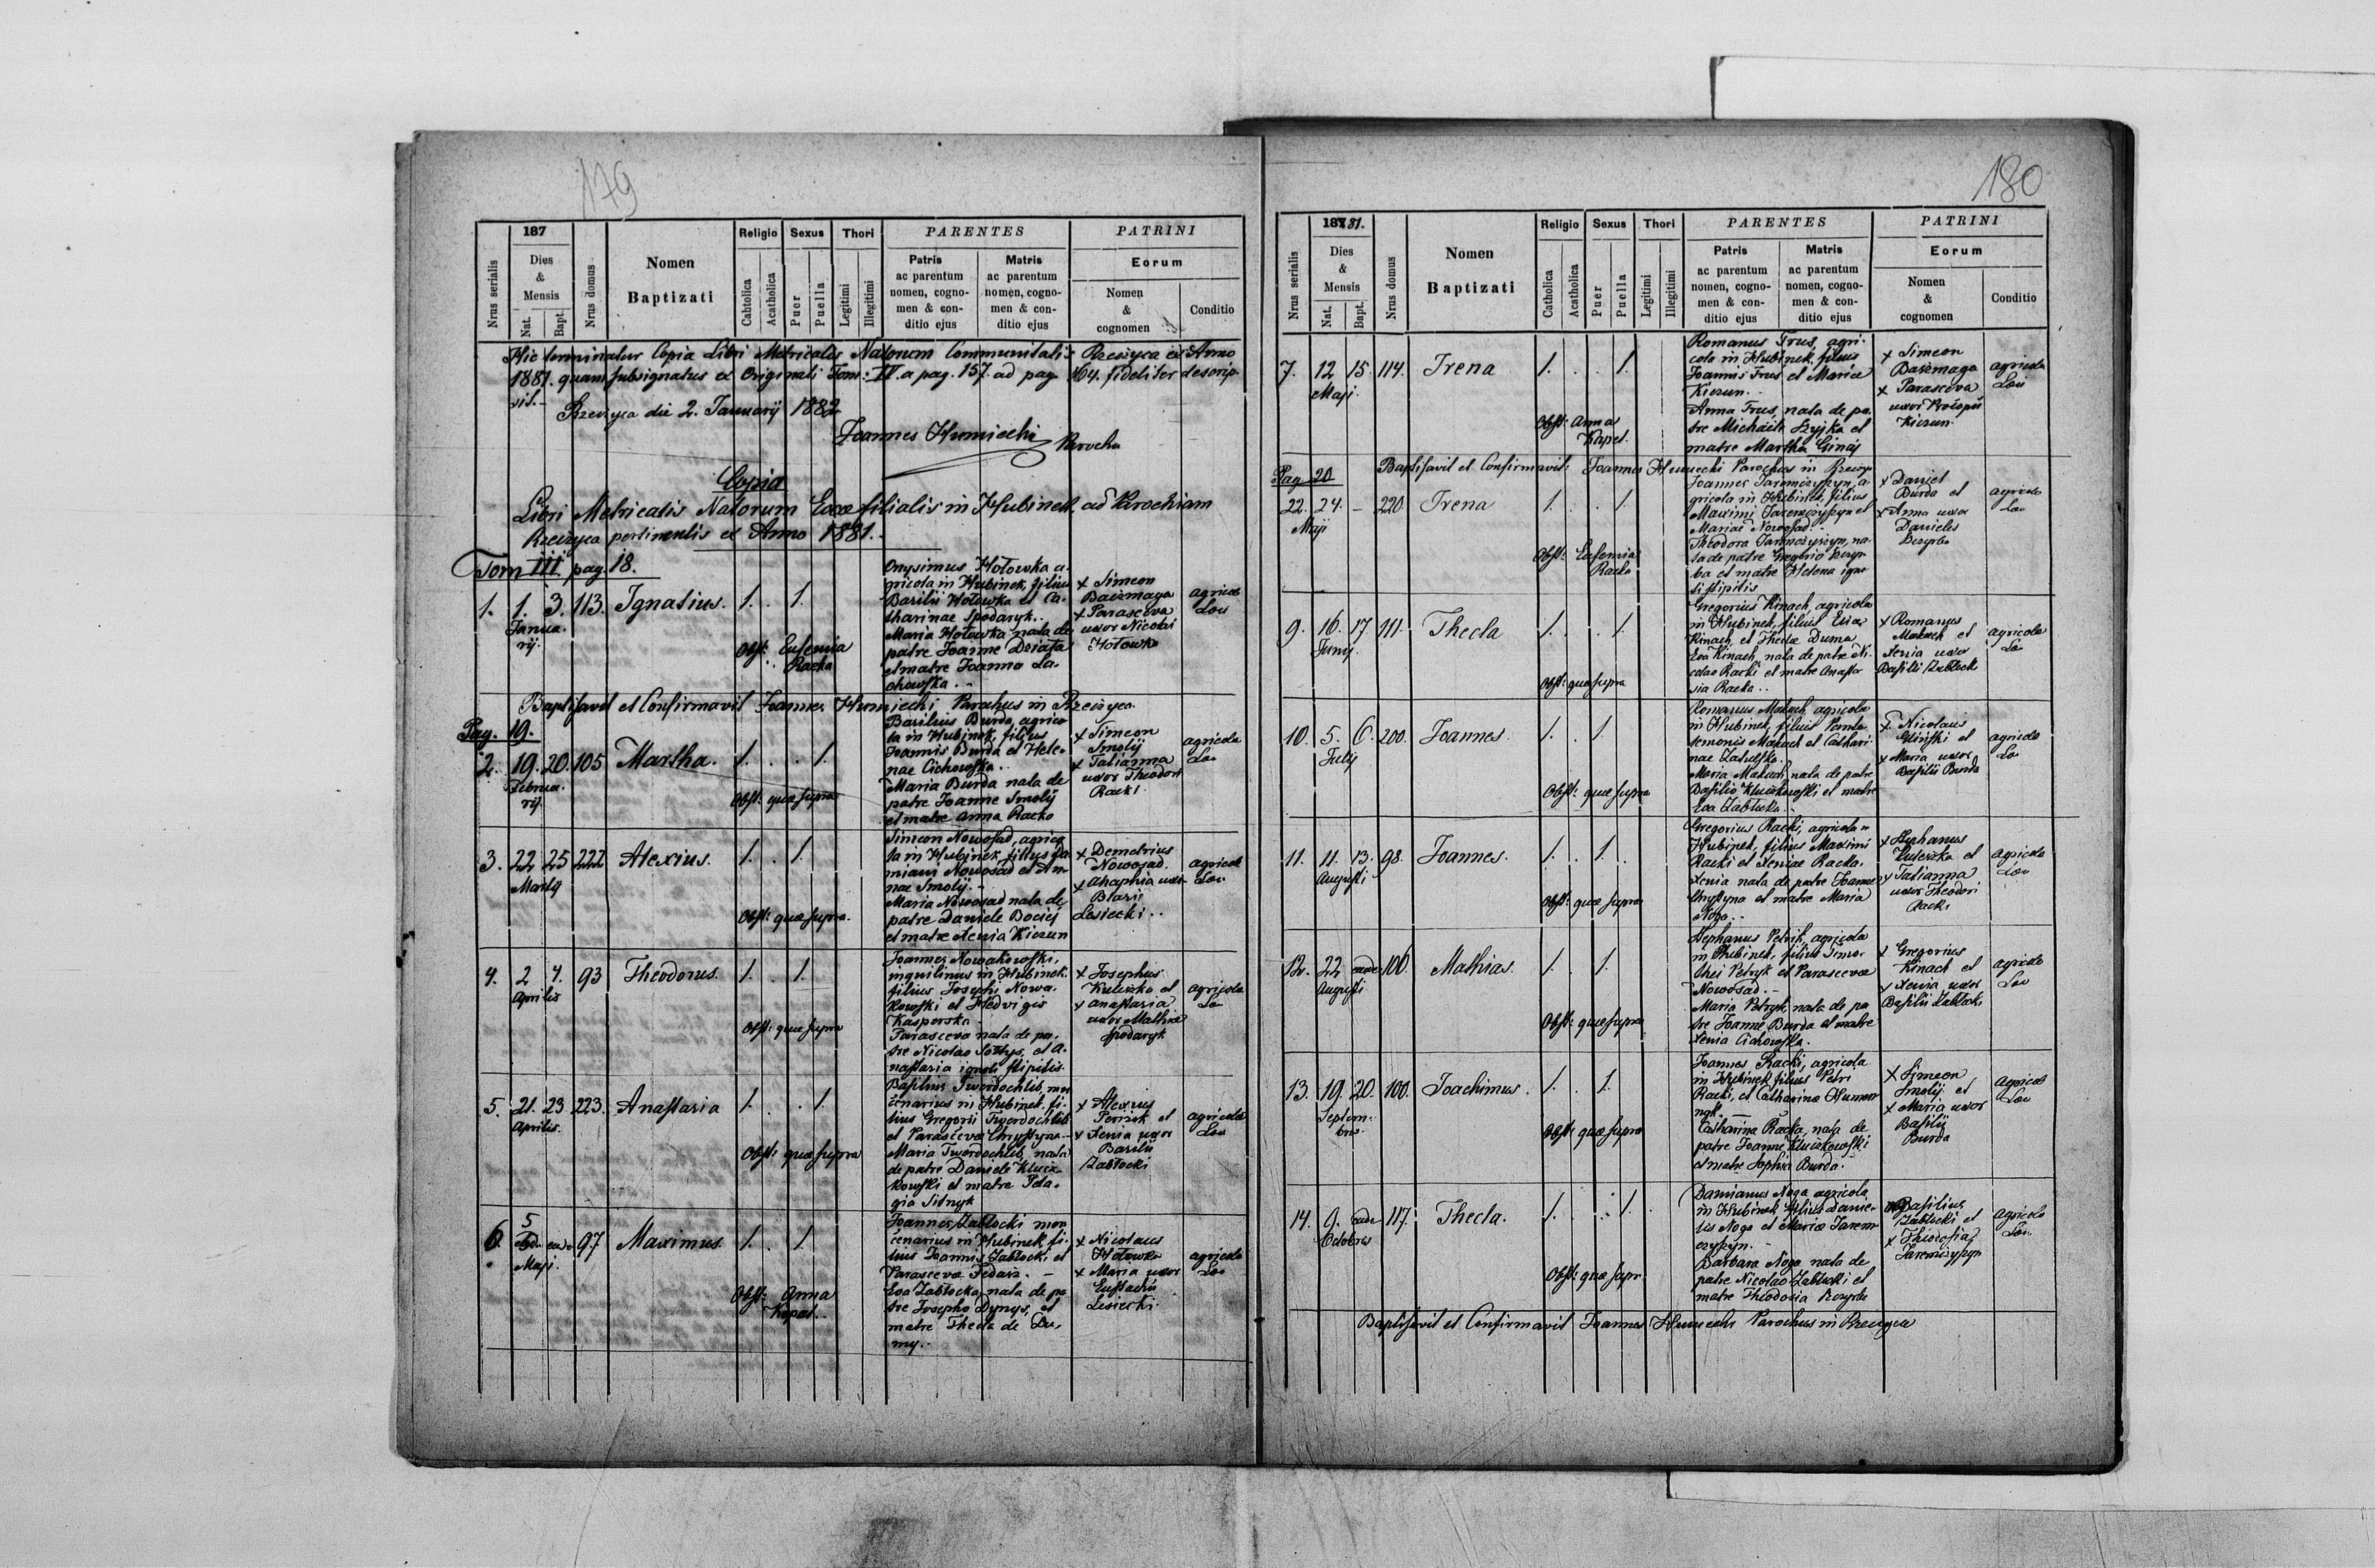 179
187
Nrus serialis
Dies & Mensis
Nat.
Bapt.
Nrus domus
Nomen Baptizati
Religio
Catholica
Acatholica
Sexus
Puer
Puella
Thori
Legitimi
Illegitimi
PARENTES
Patris ac parentum nomen, cognomen & conditio ejus
Matris ac parentum nomen, cognomen & conditio ejus
PATRINI
Eorum
Nomen & cognomen
Conditio
Hic terminatur Copia Libri Metricalis Natorum Communitatis Rzeczyca ex Anno
1881. quam subsignatus ex Originali Tom: IV. a pag. 157. ad pag. 164. fideliter descrip-
sit.
Rzeczyca die 2. Januarij 1882
Joannes Humiecki Parochus
Copia
Libri Metricalis Natorum Ecclae filialis in Hubinek, ad Parochiam
Rzeczyca pertinentis ex Anno 1881.
Tom III. pag. 18.
1. 1. 3. 113. Ignatius. 1. 1.
Janua-
rij.
Obst: Eufemia
Racka
Onysimus Hołowka a-
gricola in Hubinek, filius
Basilii Hołowka et Ca-
tharinae Spodaryk.
Maria Hołowka nata de
patre Joanne Dziafa
et matre Joanna La-
chowska.
+ Simeon
+ Parasceva
uxor Nicolai
Hołowka
agricolae
Baptisavit et Confirmavit Joannes Humiecki Parochus in Rzeczyca.
Pag. 19.
2. 19. 20. 105 Martha. 1. 1.
Februa-
rij.
Obst: quae supra
Basilius Burda, agrico-
la in Hubinek, filius
Joannis Burda et Hele-
nae Cichowska.
Maria Burda nata de
patre Joanne Smolij
et matre Anna Racka
+ Simeon
Smolij
+ Tatianna
uxor Theodori
Racki
agricolae
3. 22 25 222 Alexius. 1. 1.
Martij
Obst: quae supra.
Simeon Nowosad, agrico-
la in Hubinek, filius Da-
miani Nowosad et An-
nae Smolij.
Maria Nowosad nata de
patre Daniele Bociej
et matre Xenia Kiczun
+ Demetrius
Nowosad
+ Ahaphia uxor
Blasii
Lesiecki
agricolae
4. 2 4. 93 Theodorus. 1. 1.
Aprilis
Obst: quae supra
Joannes Nowakowski,
inquilinus in Hubinek,
filius Josephi Nowa-
kowski et Hedvigis
Kasperska
Parasceva nata de pa-
tre Nicolao Sołtys, et A-
nastasia ignoti stipitis.
+ Josephus
Kuleszka et
+ Anastasia
uxor Mathiae
Spodaryk
agricolae
5. 21. 23. 223. Anastasia 1. 1.
Aprilis.
Obst: quae supra
Basilius Twerdochlib, mer-
cenarius in Hubinek, fi-
lius Gregorii Twerdochlib
et Parascevae Chrystyna.
Maria Twerdochlib, nata
de patre Daniele Klucz-
kowski et matre Pela-
gia Sitnyk
+ Alexius
et
+ Xenia uxor
Basilii
Zabłocki
agricolae
6. 5 eade 97 Maximus. 1. 1.
Maji.
Obst: Anna
Kapel.
Joannes Zabłocki mer-
cenarius in Hubinek, fi-
lius Joannis Zabłocki, et
Parascevae Fedaß.
Eva Zabłocka, nata de pa-
tre Josepho Dynys, et
matre Thecla de Du-
my.
+ Nicolaus
Hołowka
+ Maria uxor
Eustachii
Lesiecki
agricolae
180
1881.
Nrus serialis
Dies & Mensis
Nat.
Bapt.
Nrus domus
Nomen Baptizati
Religio
Catholica
Acatholica
Sexus
Puer
Puella
Thori
Legitimi
Illegitimi
PARENTES
Patris ac parentum nomen, cognomen & conditio ejus
Matris ac parentum nomen, cognomen & conditio ejus
PATRINI
Eorum
Nomen & cognomen
Conditio
7. 12 15. 114. Irena 1. 1.
Maji.
Obst: Anna
Kapel.
Romanus Trus, agri-
cola in Hubinek, filius
Joannis Trus et Mariae
Kiczun.
Anna Trus, nata de pa-
tre Michaele Szyjka et
matre Martha Ginaj
+ Simeon
+ Parasceva
uxor Procopii
Kiczun
agricolae
Pag. 20
Baptisavit et Confirmavit: Joannes Humiecki Parochus in Rzeczyca
22. 24. – 220. Irena 1. 1.
Maji
Obst: Eufemia
Racka
Joannes Jaremczyszyn, a-
gricola in Hubinek, filius
Maximi Jaremczyszyn et
Mariae Nowosad.
Theodora Jaremczyszyn, na-
ta de patre Gregorio Dczyr-
ba et matre Helena igno-
ti stipitis
+ Daniel
Burda et
+ Anna uxor
Danielis
agricolae
9. 16. 17 111. Thecla 1. 1.
Junij.
Obst: quae supra
Gregorius Kinach, agricola
in Hubinek, filius Eliae
Kinach, et Theclae Duma
Eva Kinach, nata de patre Ni-
colao Racki et matre Anasta-
sia Racka.
+ Romanus
Makuch et
Xenia uxor
Basilii Zabłocki
agricolae
10. 5. 6. 200. Joannes. 1. 1.
Julij
Obst: quae supra
Romanus Makuch, agricola
in Hubinek, filius Panta-
lemonis Makuch et Cathari-
nae Załuska.
Maria Makuch, nata de patre
Basilio Kluczkowski et matre
Eva Zabłocka.
+ Nicolaus
Gliński et
+ Maria uxor
Basilii Burda
agricolae
11. 11. 13. 98. Joannes. 1. 1.
Augusti
Obst: quae supra
Gregorius Racki, agricola in
Hubinek, filius Maximi
Racki et Xeniae Racka.
Xenia nata de patre Joanne
Chrystyna et matre Maria
Noga.
+ Stephanus
Kuleszka et
+ Tatianna
uxor Theodori
Racki
agricolae
12. 22 eade 106 Mathias. 1. 1.
Augusti
Obst: quae supra
Stephanus Petryk, agricola
in Hubinek, filius Timo-
thei Petryk et Parascevae
Nowosad.
Maria Petryk, nata de pa-
tre Joanne Burda et matre
Xenia Cichowska.
+ Gregorius
Kinach et
+ Xenia uxor
Basilii Zabłocki
agricolae
13. 19. 20. 100. Joachimus. 1. 1.
Septem-
bris.
Obst: quae supra
Joannes Racki, agricola
in Hubinek, filius Petri
Racki, et Catharinae
Catharina Racka, nata de
patre Joanne Kluczkowski
et matre Sophia Burda.
+ Simeon
Smolij et
+ Maria uxor
Basilii
Burda
agricolae
14. 9. eade 117. Thecla. 1. 1.
Octobris
Obst: quae supr.
Damianus Noga agricola
in Hubinek, filius Danie-
lis Noga et Mariae Jarem-
czyszyn.
Barbara Noga nata de
patre Nicolao Zabłocki et
matre Theodosia
Basilius
Zabłocki et
+ Theodosia
Jaremczyszyn
agricolae
Baptisavit et Confirmavit Joannes Humiecki Parochus in Rzeczyca